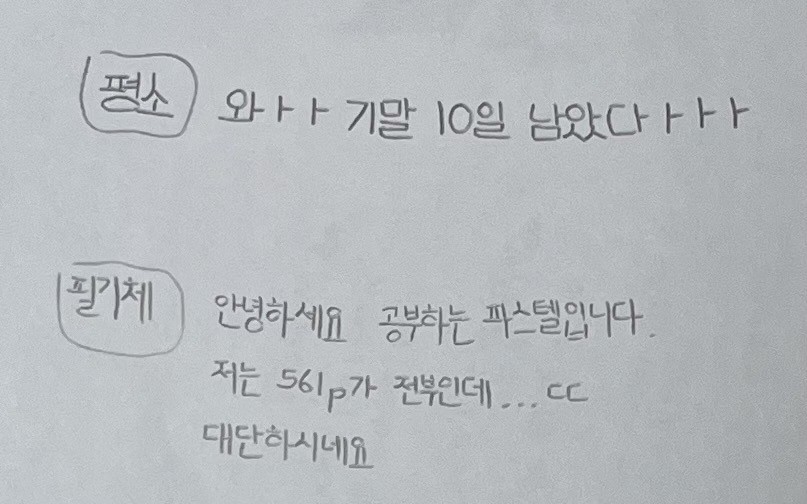 평소 와ㅏㅏ 기말 10일 남았다ㅏㅏㅏ
필기체 안녕하세요 공부하는 파스텔입니다.
저는 561p가 전부인데... ㄷㄷ
대단하시네요